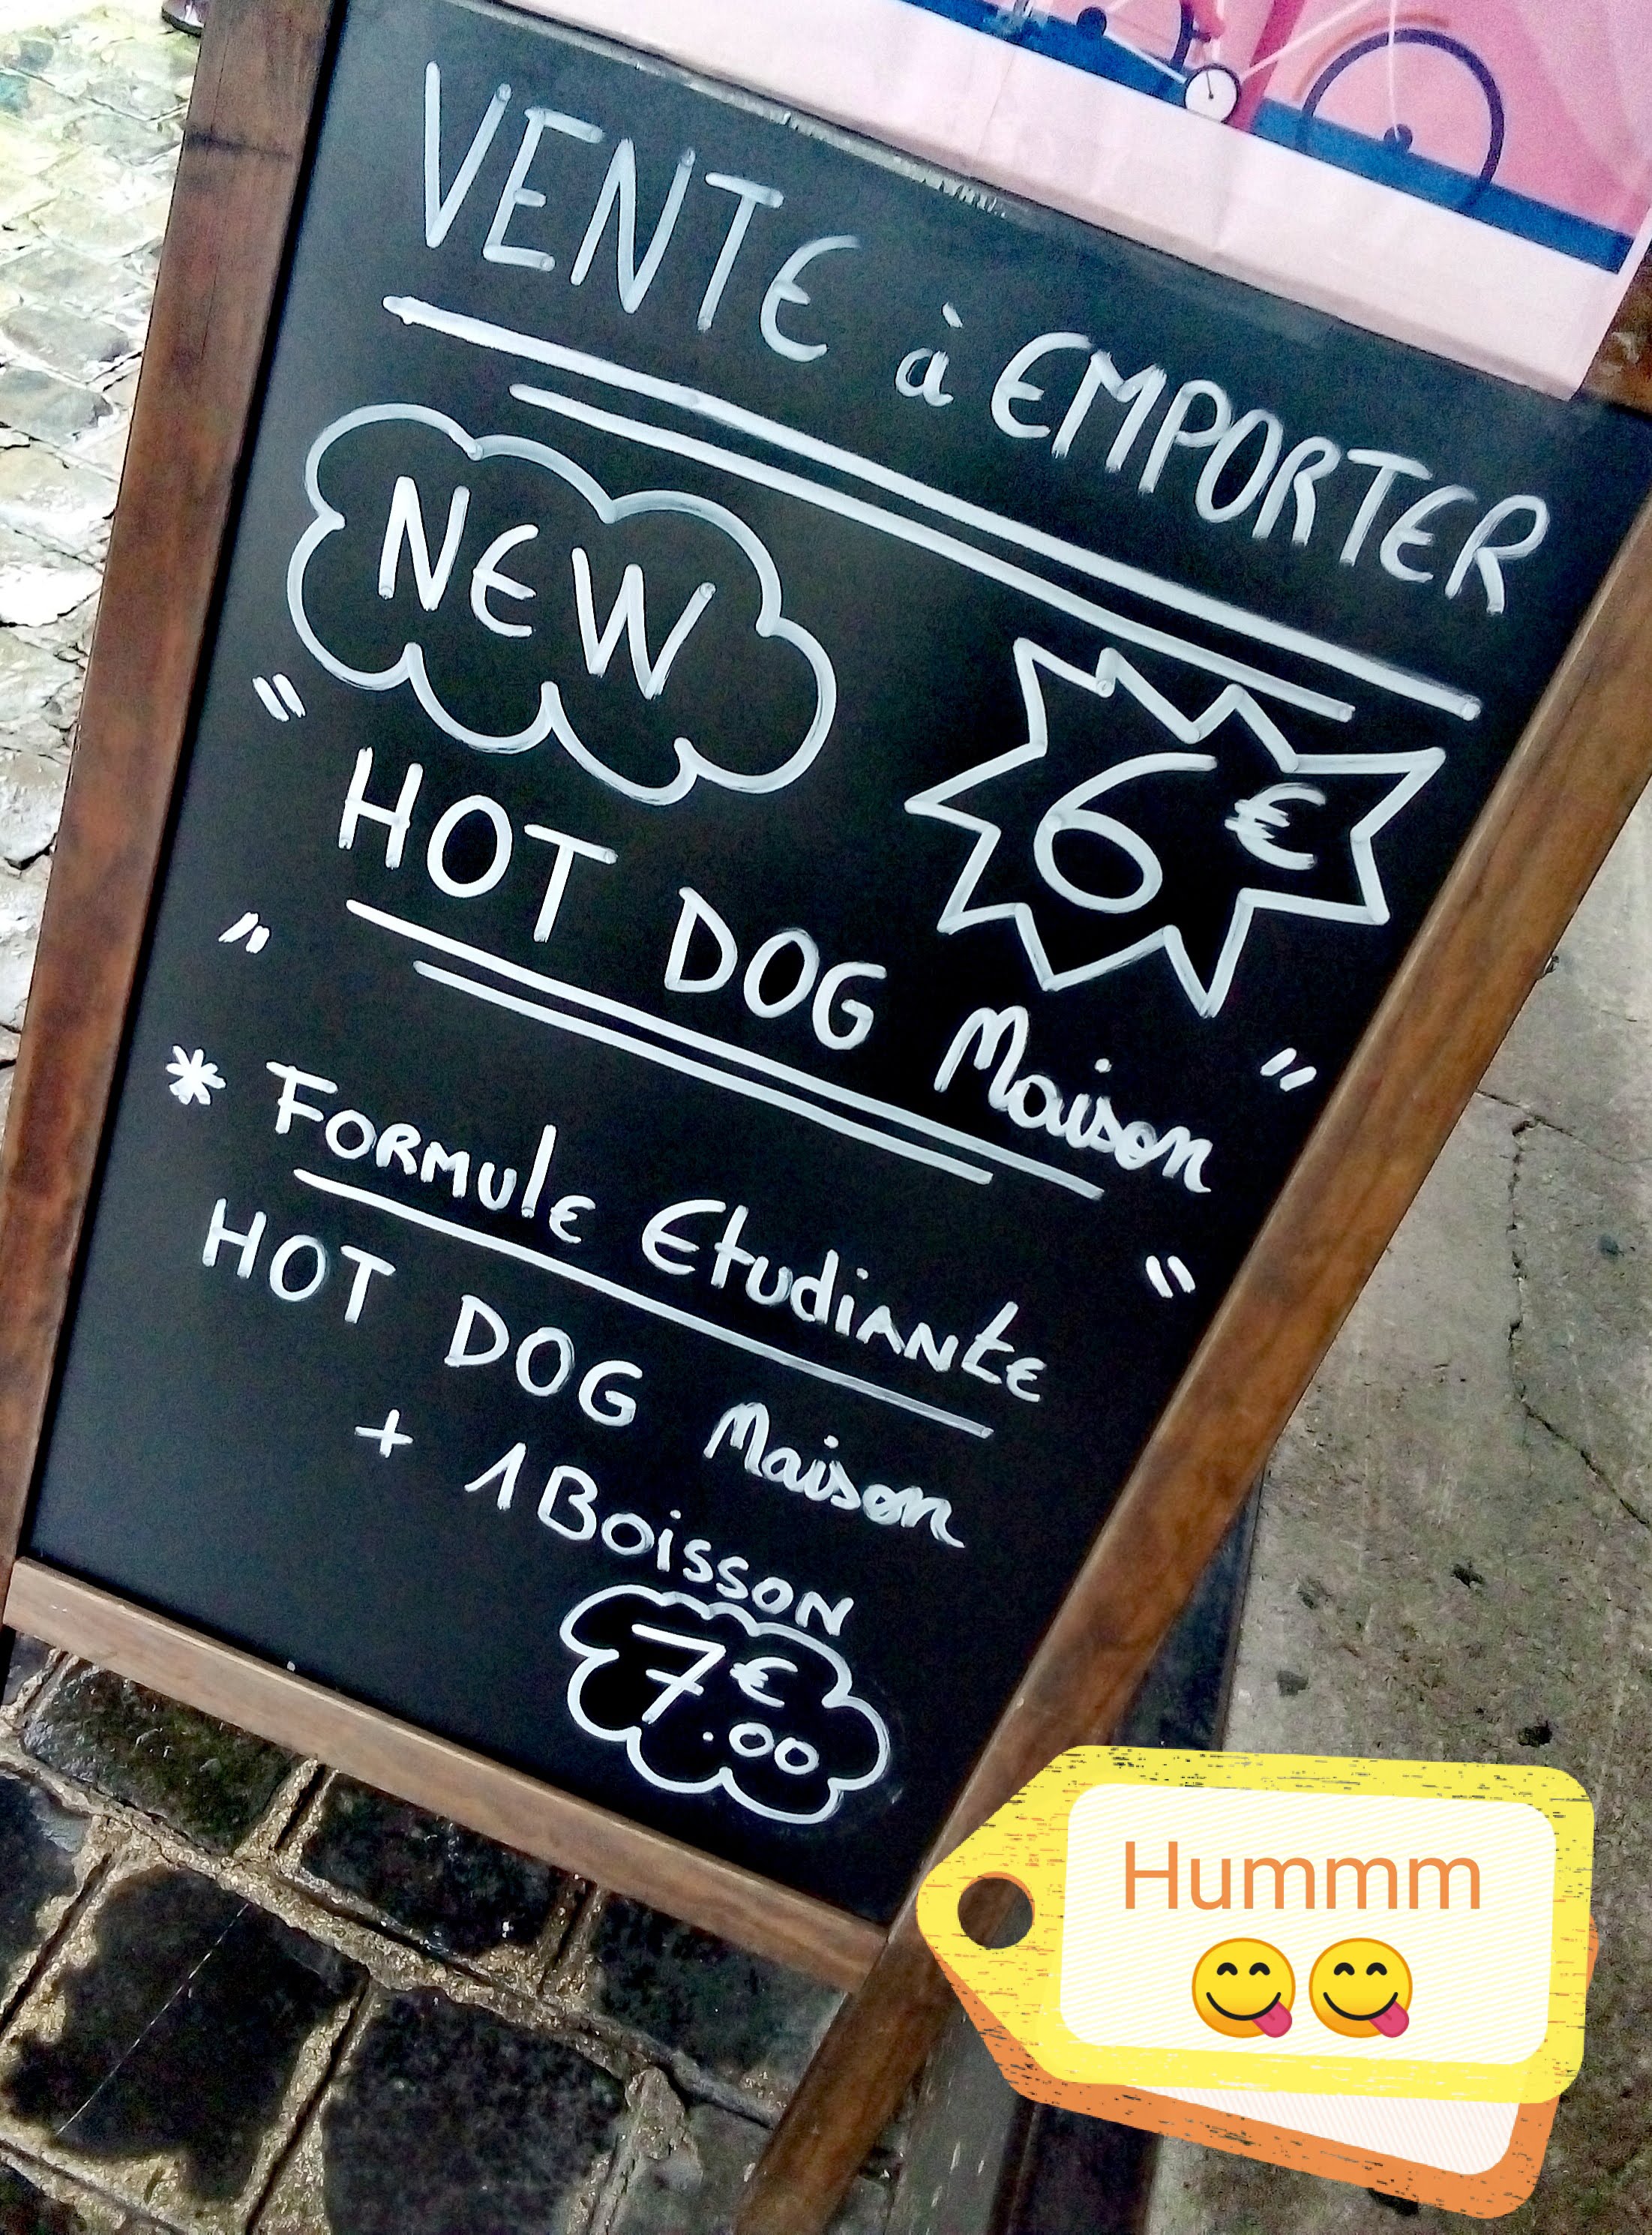 VENTE à EMPORTER
NEW
6 €
" HOT DOG Maison "
" * FORMULE ETUDIANTE "
HOT DOG Maison
+ 1 BOISSON
7€.00
Hummm
😋😋